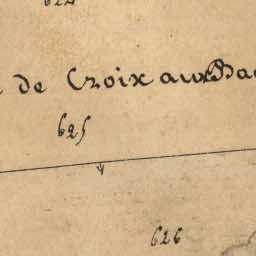 de Croix aux
625
626